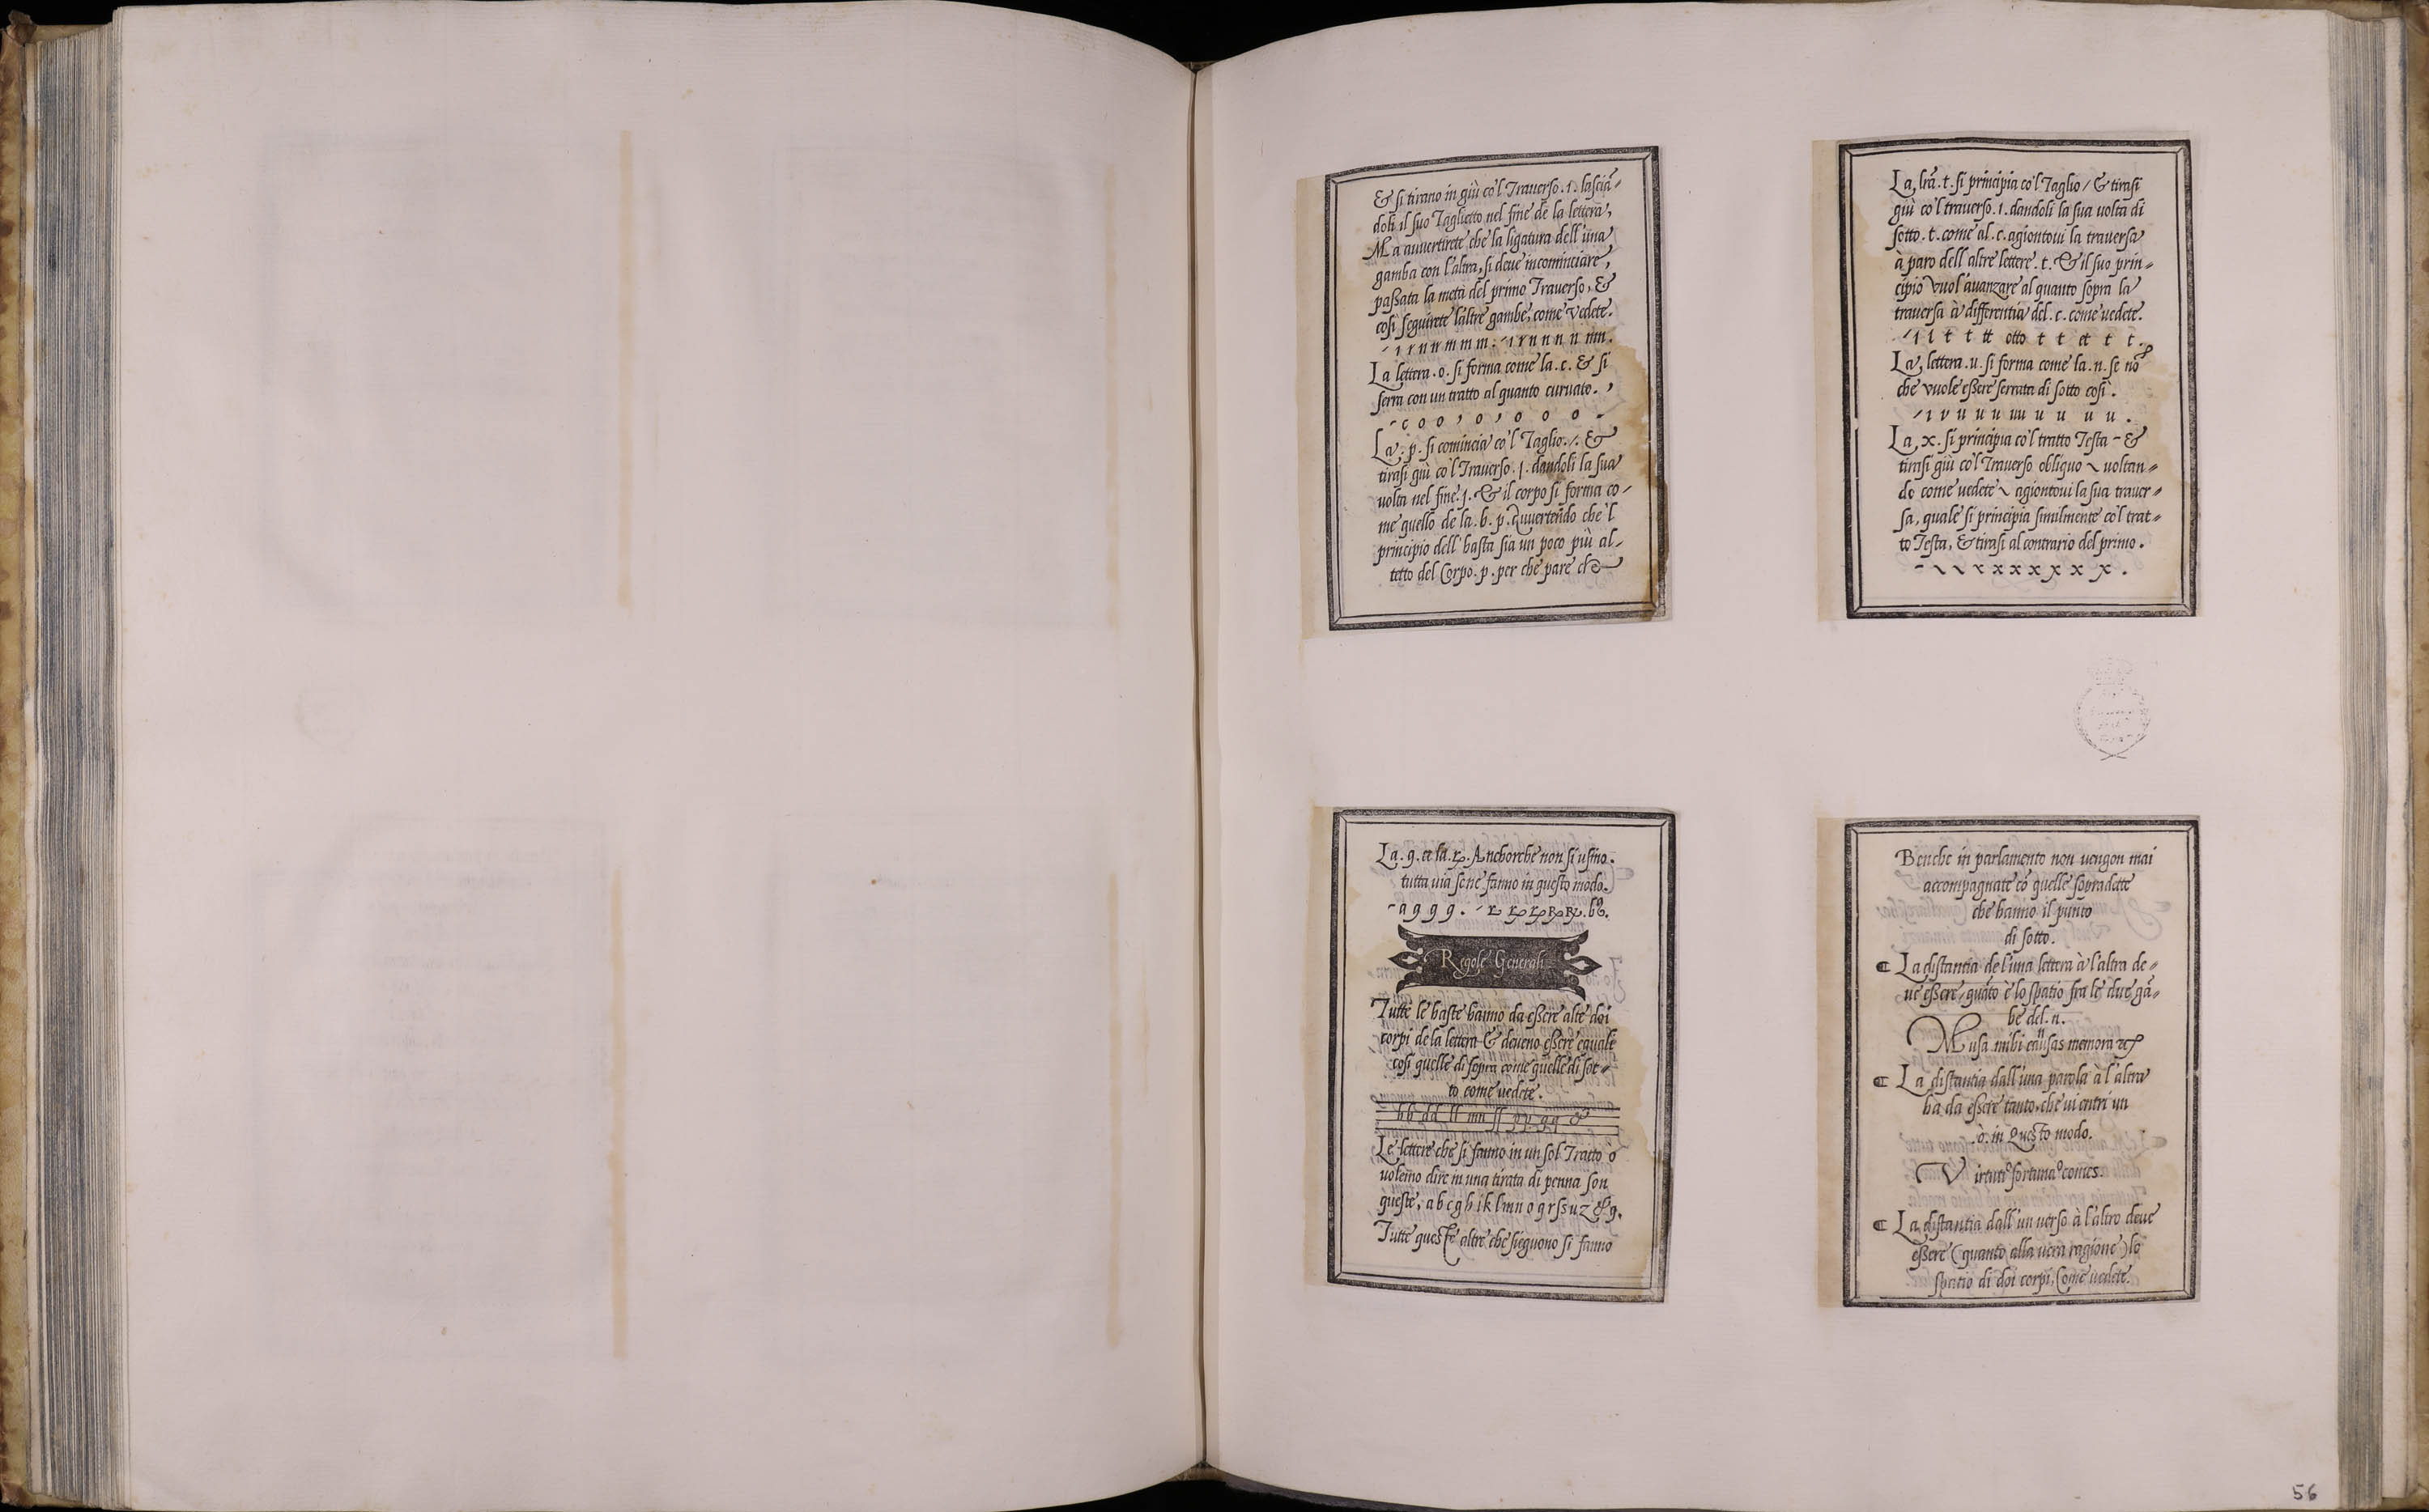 & si tirano in giù co'l Trauerso .ı. lasciã-
doli il suo Taglietto nel fine de la lettera,
Ma auuertirete che la ligatura dell'una
gamba con l'altra, si deue incominciare,
paßata la metà del primo Trauerso, &
cosi seguirete l'altre gambe, come vedete.
La lettera .o. si forma come la .c. & si
serra con un tratto al quanto curuato.
La .p. si comincia co'l Taglio ./. &
tirasi giù co'l Trauerso .ſ. dandoli la sua
uolta nel fine .ſ. & il corpo si forma co-
me quello de la .b. p. Auuertendo che'l
principio dell'hasta sia un poco più al-
tetto del Corpo .p. per che pare che
La, lrã .t. si principia co'l Taglio / & tirasi
giù co'l trauerso .ı. dandoli la sua uolta di
sotto .t. come al .c. agiontoui la trauersa
à paro dell'altre lettere .t. & il suo prin-
cipio vuol'auanzare al quanto sopra la
trauersa à differentia del .c. come uedete.
La, lettera .u. si forma come la .n. se nõ
che vuole eßere serrata di sotto così.
La, x. si principia co'l tratto Testa - &
tirasi giù co'l Trauerso obliquo \ uoltan-
do come uedete \ agiontoui la sua trauer-
sa, quale si principia similmente co'l trat-
to Testa, & tirasi al contrario del primo.
La .9. et la .ꝝ. Anchorche non si usino.
tutta uia sene fanno in questo modo.
Regole Generali
Tutte le haste hanno da eßere alte doi
corpi de la lettera & deueno eßere eguale
cosi quelle di sopra come quelle di sot-
to come uedete.
Le lettere che si fanno in un sol Tratto o
uolemo dire in una tirata di penna son
queste, a b c g h i k l m n o q r ſ s u z & 9.
Tutte queste altre che sieguono si fanno
Benche in parlamento non uengon mai
accompagnate cõ quelle sopradette
che hanno il punto
di sotto.
La distantia de l'una lettera à l'altra de-
ue eßere, quãto è lo spatio fra le due gã-
be del .n.
Musa mihi causas memora
La distantia dall'una parola à l'altra
ha da eßere tanto, che ui entri un
.o. in Questo modo.
Virtuti° fortuna° comes.
La distantia dall'un uerso à l'altro deue
eßere (quanto alla uera ragione) lo
spatio di doi corpi, Come uedete.
56